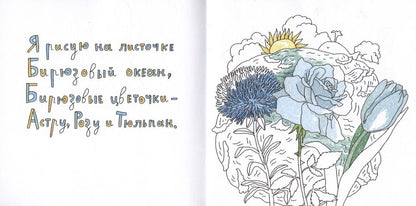 Я рисую на листочке
Бирюзовый океан,
Бирюзовые цветочки –
Астру, Розу и Тюльпан.